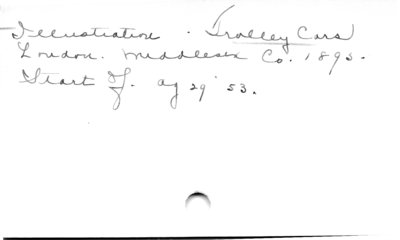 Illustration. Trolley Cars
London. Middlesex Co. 1895.
Start of. ag 29 '53.